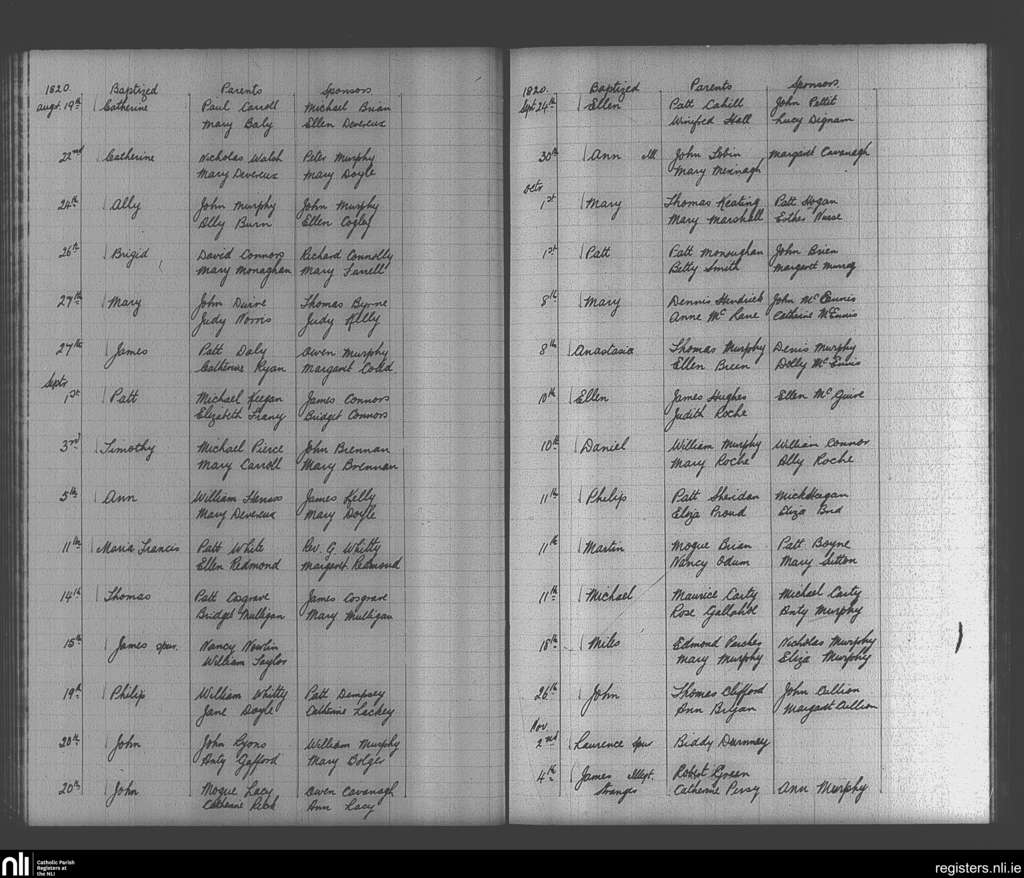 1820. Baptized Parents Sponsors
Augt. 19th Catherine Paul Carroll Michael Brian
Mary Baly Ellen Devereux
22nd Catherine Nicholas Walsh Peter Murphy
Mary Devereux Mary Doyle
24th Ally John Murphy John Murphy
Ally Burn Ellen Cogley
26th Brigid David Connors Richard Connolly
Mary Monaghan Mary Farrell
27th Mary John Thomas Byrne
Judy Norris Judy Kelly
27th James Patt Daly Owen Murphy
Catherine Ryan Margaret Codd
Septr
1st Patt Michael Keegan James Connors
Elizabeth Bridget Connors
3rd Timothy Michael Pierce John Brennan
Mary Carroll Mary Brennan
5th Ann William James Kelly
Mary Devereux Mary Doyle
11th Maria Francis Patt White Rev. G. Whitty
Ellen Redmond Margaret Redmond
14th Thomas Patt Cosgrave James Cosgrave
Bridget Mulligan Mary Mulligan
15th James spur. Nancy Nowlin
William Taylor
19th Philip William Whitty Patt Dempsey
Jane Doyle Catherine Lackey
20th John John Lyons William Murphy
Anty Gafford Mary Bolger
20th John Mogue Lacy Owen Cavanagh
Catherine Ann Lacy
1820. Baptized Parents Sponsors
Sept 24th Ellen Patt Cahill John Pettit
Winifred Hall Lucy Dignam
30th Ann Ill. John Tobin Margaret Cavanagh
Mary
Octr
1st Mary Thomas Keating Patt Hogan
Mary Marshall Esther Nurse
1st Patt Patt Monaughan John Brien
Betty Smith Margaret Murray
8th Mary Dennis Hendrick John McEnnis
Anne McLane Catherine McEnnis
8th Anastasia Thomas Murphy Denis Murphy
Ellen Breen Dolly McEnnis
10th Ellen James Hughes Ellen McGuire
Judith Roche
10th Daniel William Murphy William Connor
Mary Roche Ally Roche
11th Philip Patt Sheridan Mick Hogan
Eliza Proud Eliza Bird
11th Martin Mogue Brian Patt Boyne
Nancy Odum Mary Sutton
11th Michael Maurice Carty Michael Carty
Rose Anty Murphy
18th Miles Edmond Nicholas Murphy
Mary Murphy Eliza Murphy
26th John Thomas Clifford John Cullion
Ann Bryan Margaret Cullion
Nov.
2nd Laurence spur Biddy
4th James Illegt. Robert Green
Catherine Ann Murphy
nli Catholic Parish
Registers at
the NLI
registers.nli.ie